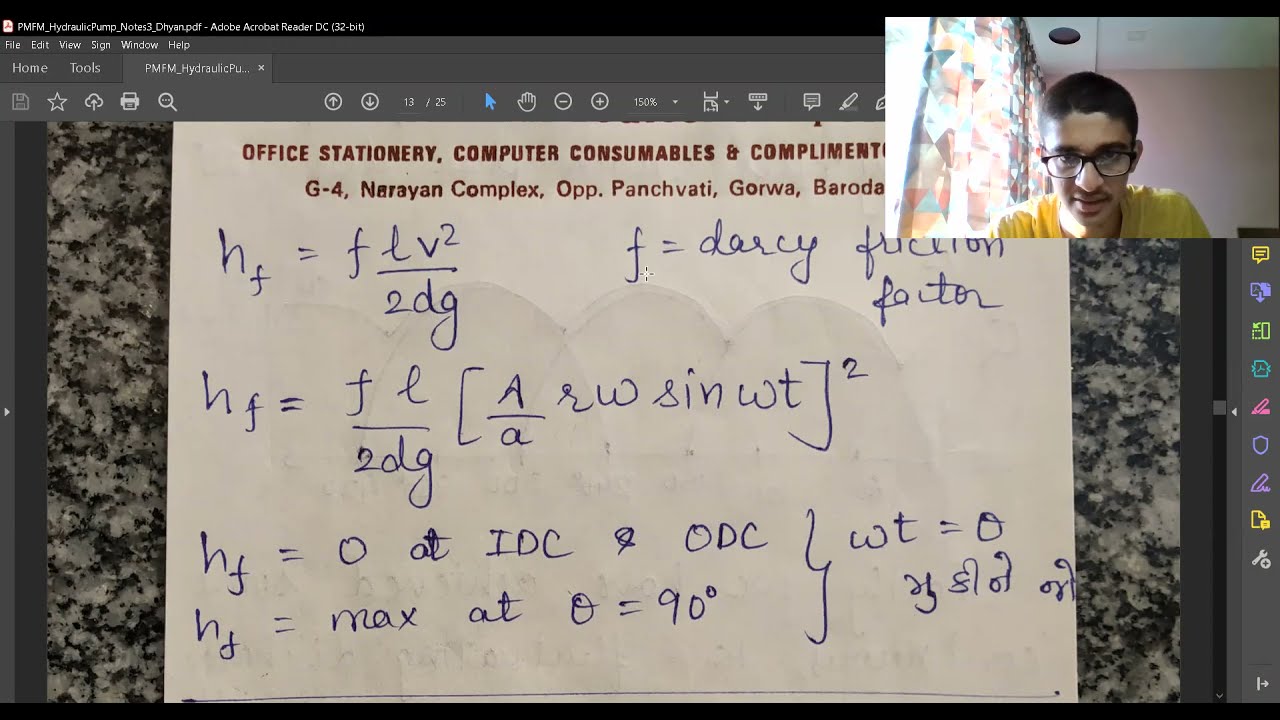 PMFM_HydraulicPump_Notes3_Dhyan.pdf - Adobe Acrobat Reader DC (32-bit)
File Edit View Sign Window Help
Home Tools PMFM_HydraulicPu... ×
13 / 25 150%
OFFICE STATIONERY, COMPUTER CONSUMABLES &
G-4, Narayan Complex, Opp. Panchvati, Gorwa, Baroda
h_f = f l v² / 2dg f = darcy friction
factor
h_f = f l / 2dg [A/a rω sin ωt]²
h_f = 0 at IDC & ODC } ωt = θ
મુકીને જો
h_f = max at θ = 90°